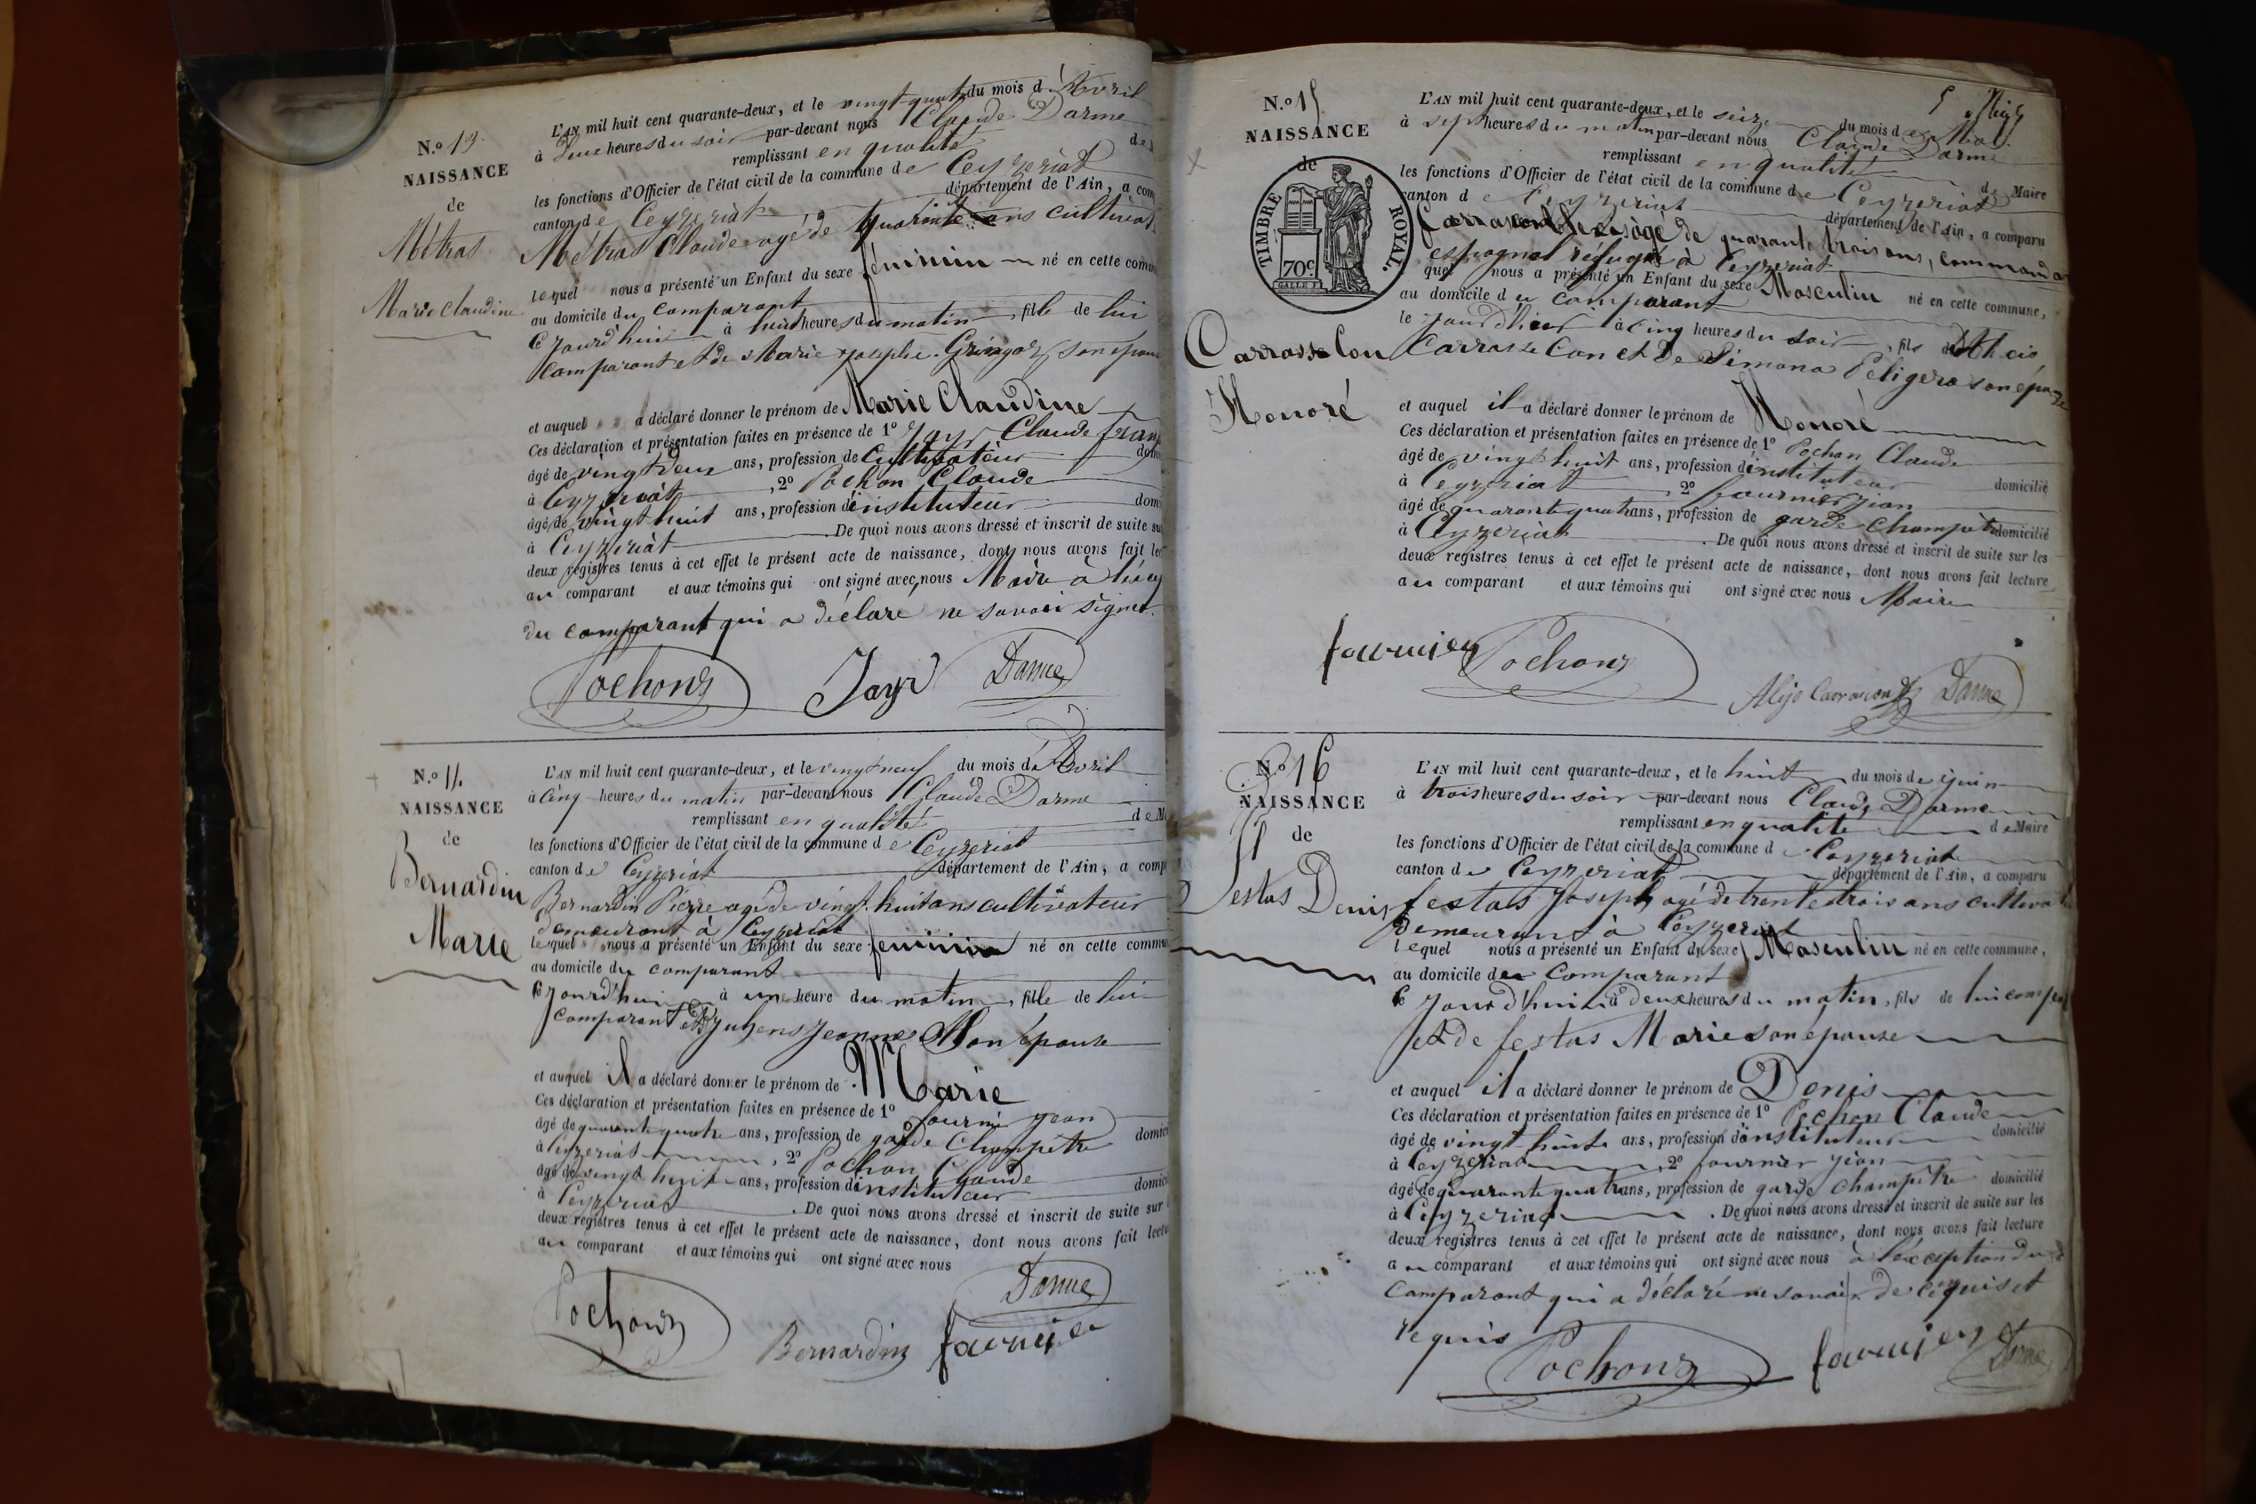 N.º 13.
NAISSANCE
de
Métras
Marie Claudine
L'AN mil huit cent quarante-deux, et le vingt-quatre du mois d'Avril
à deux heures du soir par-devant nous Claude Darme
remplissant en qualité de
les fonctions d'Officier de l'état civil de la commune de Ceyzeriat
canton de Ceyzeriat département de l'Ain, a com
Métras Claude agé de quarante ans cultivat
lequel nous a présenté un Enfant du sexe féminin né en cette comm
au domicile du comparant
ce jourd'hui à huit heures du matin, fille de lui
comparant et de Marie josephe son épouse
et auquel a déclaré donner le prénom de Marie Claudine
Ces déclaration et présentation faites en présence de 1º Jayr Claude fran
âgé de vingt deux ans, profession de Cultivateur domi
à Ceyzeriat, 2º Pochon Claude
âgé de vingt huit ans, profession d'instituteur domi
à Ceyzeriat. De quoi nous avons dressé et inscrit de suite su
deux registres tenus à cet effet le présent acte de naissance, dont nous avons fait le
au comparant et aux témoins qui ont signé avec nous Maire à l'éxcep
du comparant qui a déclare ne savoir signer.
Pochon Jayr Darme
N.º 14
NAISSANCE
de
Bernardin
Marie
L'AN mil huit cent quarante-deux, et le vingt neuf du mois d'Avril
à Cinq heures du matin par-devant nous Claude Darme
remplissant en qualité de M
les fonctions d'Officier de l'état civil de la commune de Ceyzeriat
canton de Ceyzeriat département de l'Ain, a comp
Bernardin Pierre agé de vingt huit ans cultivateur
demeurant à Ceyzeriat
lequel nous a présenté un Enfant du sexe féminin né en cette commu
au domicile du comparant
ce jourd'hui à une heure du matin, fille de lui
comparant et de Jeanne son épouse
et auquel il a déclaré donner le prénom de Marie
Ces déclaration et présentation faites en présence de 1º fournier jean
âgé de quarante quatre ans, profession de garde Champêtre domici
à Ceyzeriat, 2º Pochon Claude
âgé de vingt huit ans, profession d'instituteur domici
à Ceyzeriat. De quoi nous avons dressé et inscrit de suite sur
deux registres tenus à cet effet le présent acte de naissance, dont nous avons fait lectu
au comparant et aux témoins qui ont signé avec nous
Pochon Bernardin fournier Darme
N.º 15
NAISSANCE
de
TIMBRE ROYAL.
70c.
Carrasse Con
Honoré
L'AN mil huit cent quarante-deux, et le seize du mois de Mai
à sept heures du matin par-devant nous Claude Darme
remplissant en qualité de Maire
les fonctions d'Officier de l'état civil de la commune de Ceyzeriat
canton de Ceyzeriat département de l'Ain, a comparu
agé de quarante trois ans, commandan
espagnol réfugié à Ceyzeriat
quel nous a présenté un Enfant du sexe Masculin né en cette commune,
au domicile du comparant
le jour d'hier à cinq heures du soir, fils d'Alecis
Carrasse Con et de Simona Peligero son épouze
et auquel il a déclaré donner le prénom de Honoré
Ces déclaration et présentation faites en présence de 1º Pochon Claude
âgé de vingt huit ans, profession d'instituteur domicilié
à Ceyzeriat, 2º fournier jean
âgé de quarante quatre ans, profession de garde Champêtre domicilié
à Ceyzeriat. De quoi nous avons dressé et inscrit de suite sur les
deux registres tenus à cet effet le présent acte de naissance, dont nous avons fait lecture
au comparant et aux témoins qui ont signé avec nous Maire
fournier Pochon Darme
N.º 16
NAISSANCE
de
festas Denis
L'AN mil huit cent quarante-deux, et le huit du mois de juin
à trois heures du soir par-devant nous Claude Darme
remplissant en qualité de Maire
les fonctions d'Officier de l'état civil de la commune de Ceyzeriat
canton de Ceyzeriat département de l'Ain, a comparu
festas Joseph agé de trente trois ans cultivat
demeurant à Ceyzeriat
lequel nous a présenté un Enfant du sexe Masculin né en cette commune,
au domicile du comparant
ce jourd'hui à deux heures du matin, fils de lui compar
et de festas Marie son épouse
et auquel il a déclaré donner le prénom de Denis
Ces déclaration et présentation faites en présence de 1º Pochon Claude
âgé de vingt huit ans, profession d'instituteur domicilié
à Ceyzeriat, 2º fournier jean
âgé de quarante quatre ans, profession de garde champêtre domicilié
à Ceyzeriat. De quoi nous avons dressé et inscrit de suite sur les
deux registres tenus à cet effet le présent acte de naissance, dont nous avons fait lecture
au comparant et aux témoins qui ont signé avec nous à l'exception du
comparant qui a déclaré ne savoir de ce quis et
requis
Pochon fournier Darme